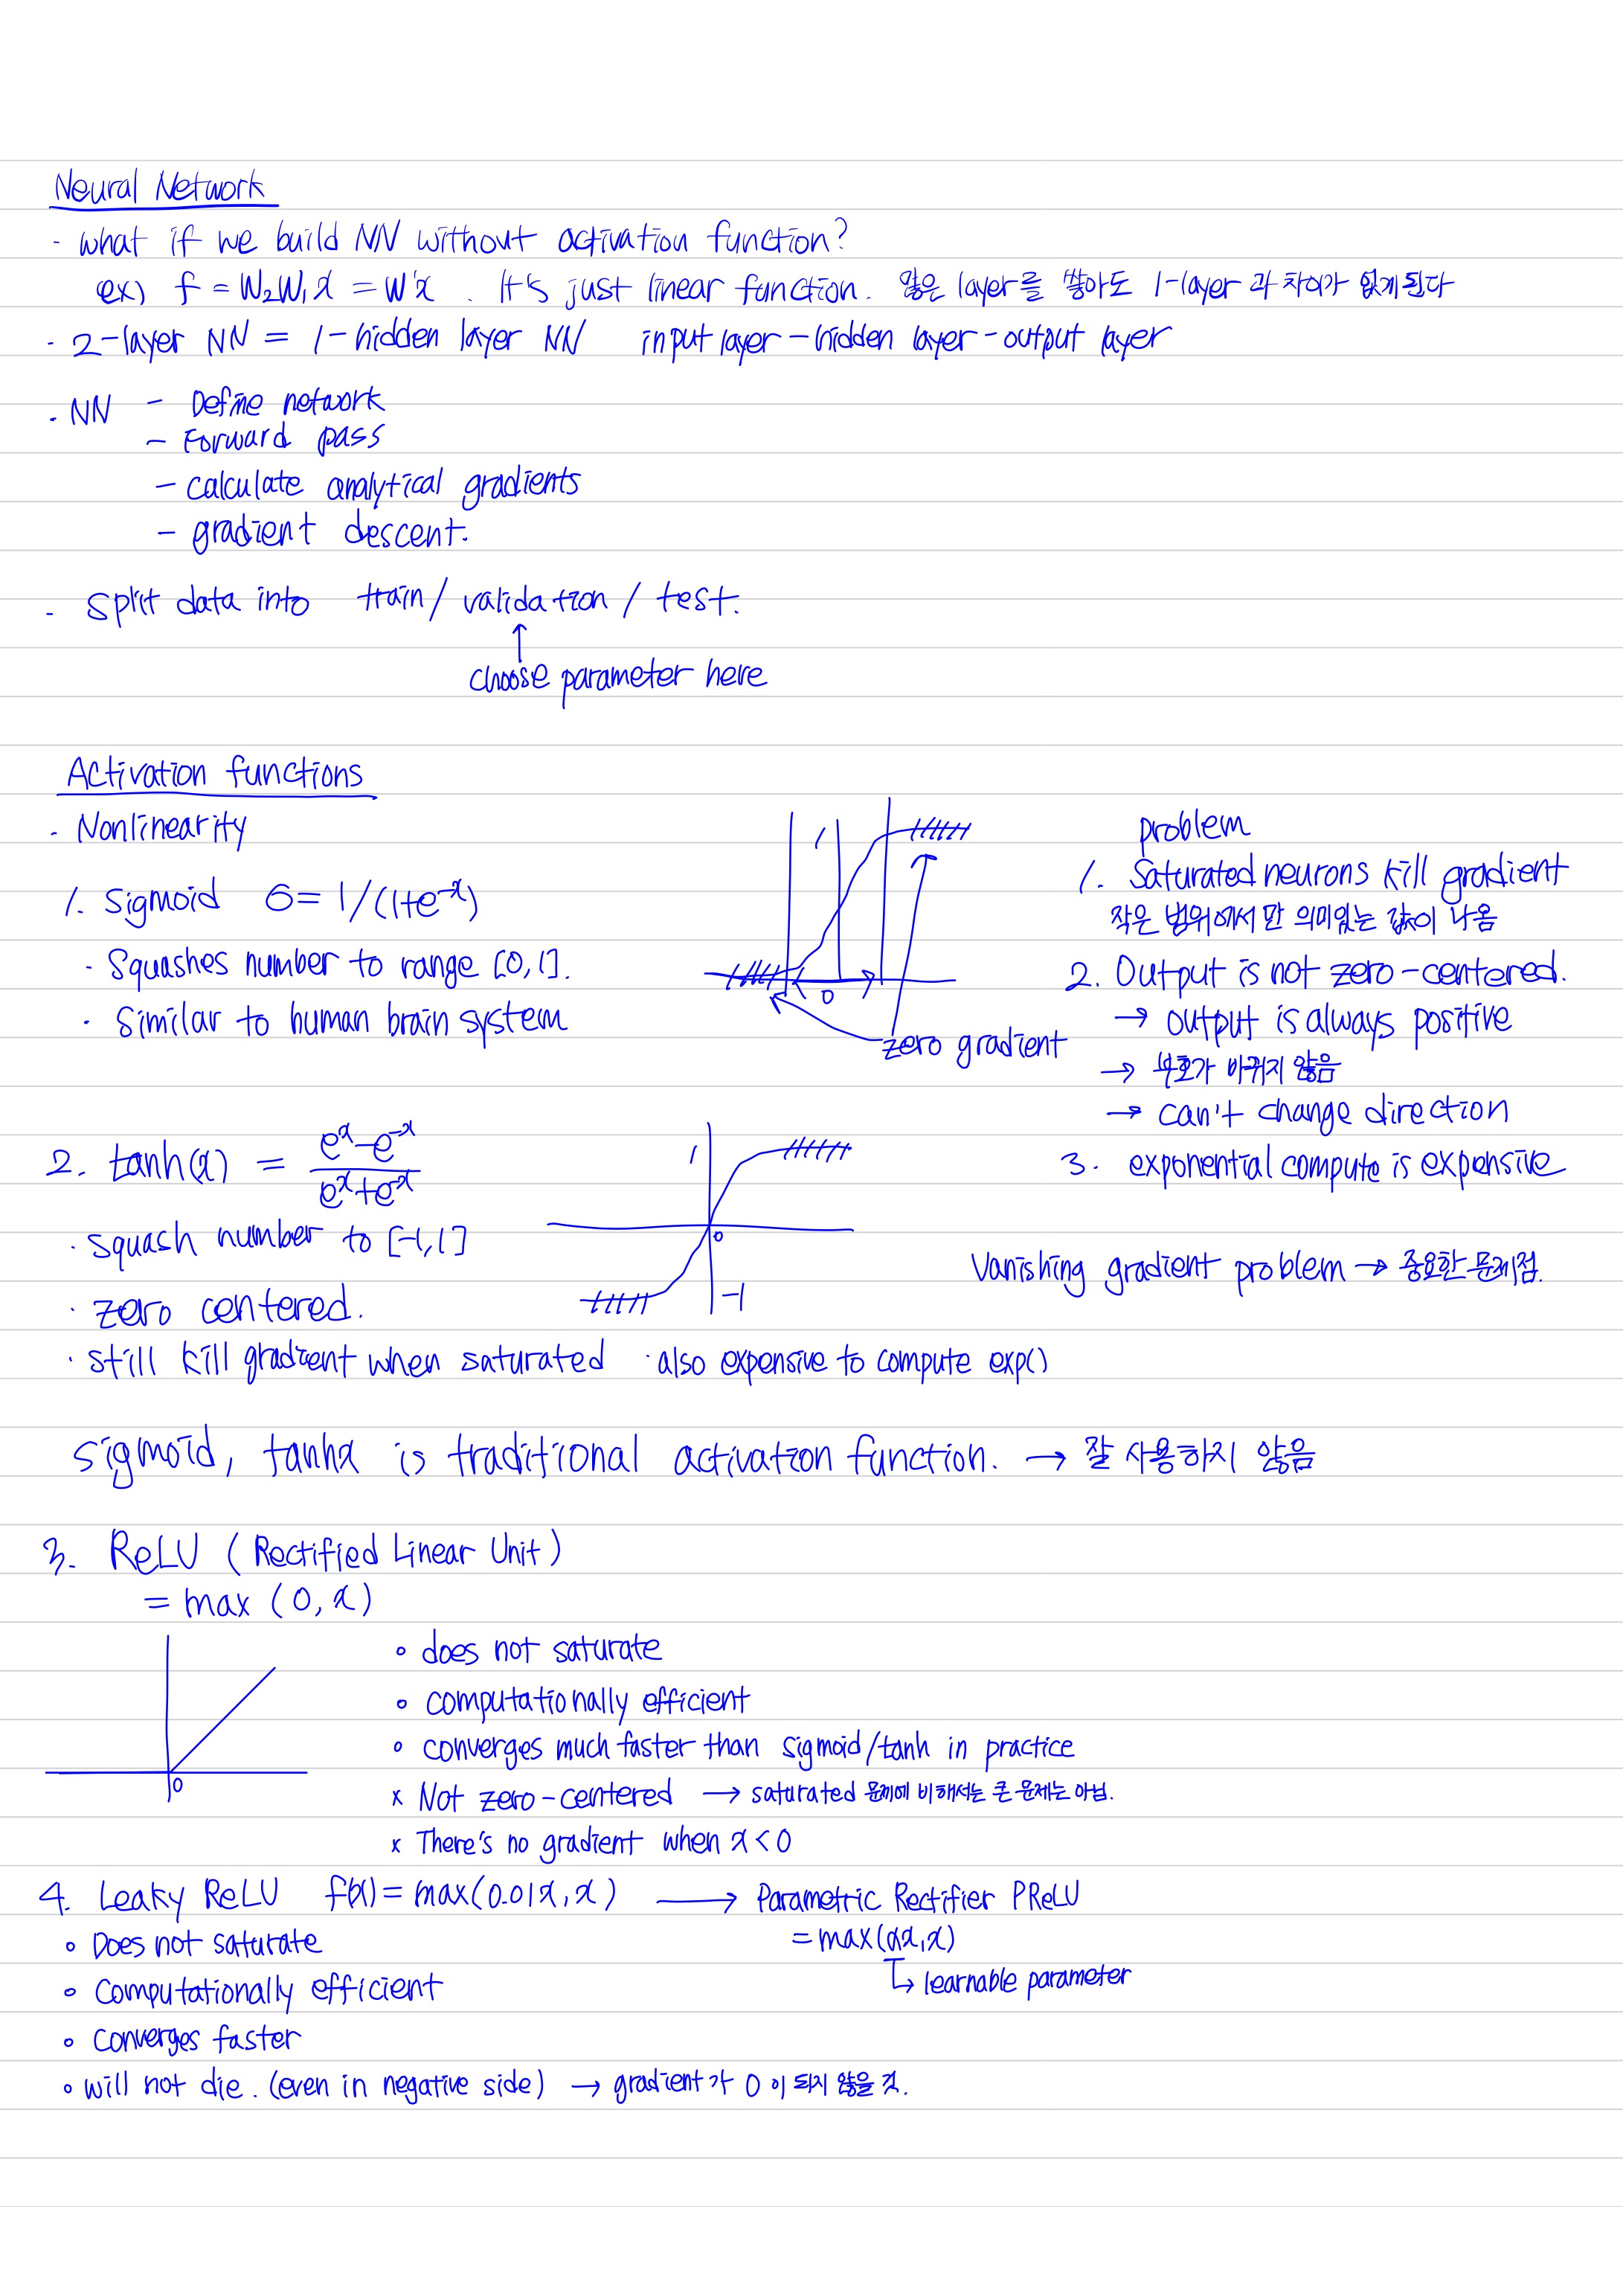 Neural Network
- what if we build NN without activation function?
ex) f = W₂W₁x = W'x . It's just linear function. 많은 layer를 쌓아도 1-layer과 차이가 없게된다
- 2-layer NN = 1-hidden layer NN input layer-hidden layer-output layer
- NN - Define network
- Forward pass
- calculate analytical gradients
- gradient descent.
- Split data into train/validation/test.
↑
choose parameter here
Activation functions
- Nonlinearity
1. Sigmoid σ = 1/(1+e^-x)
· Squashes number to range [0,1].
· Similar to human brain system
1
0
zero gradient
problem
1. Saturated neurons kill gradient
작은 범위에서만 의미있는 값이 나옴
2. Output is not zero-centered.
→ output is always positive
→ 부호가 바뀌지 않음
→ can't change direction
3. exponential compute is expensive
2. tanh(x) = (e^x - e^-x)/(e^x + e^-x)
· squash number to [-1,1]
· zero centered.
· still kill gradient when saturated · also expensive to compute exp()
1
0
-1
Vanishing gradient problem → 중요한 문제점.
sigmoid, tanhx is traditional activation function. → 잘 사용하지 않음
3. ReLU (Rectified Linear Unit)
= max (0, x)
0
∘ does not saturate
∘ computationally efficient
∘ converges much faster than sigmoid/tanh in practice
x Not zero-centered → saturated 문제에 비해서는 큰 문제는 아님.
x There's no gradient when x<0
4. Leaky ReLU f(x) = max(0.01x, x) → Parametric Rectifier PReLU
= max(αx, x)
↳ learnable parameter
∘ Does not saturate
∘ Computationally efficient
∘ Converges faster
∘ will not die. (even in negative side) → gradient가 0이 되지 않을 것.